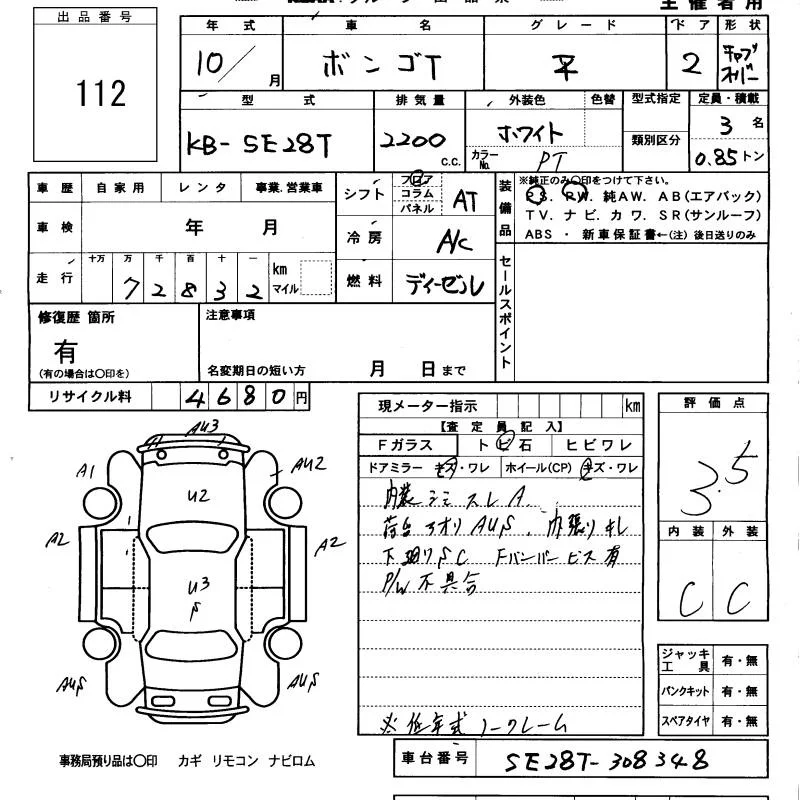 主催者用
出品番号
112
年式 車名 グレード ドア 形状
10/ 月 ボンゴT 平 2 キャブオーバー
型式 排気量 外装色 色替 型式指定 定員・積載
KB-SE28T 2200 c.c. ホワイト 類別区分 3名
カラーNo. PT 0.85トン
車歴 自家用 レンタ 事業.営業車
車検 年 月
走行 十万 万 千 百 十 一 km マイル
7 2 8 3 2
シフト フロア コラム パネル AT
冷房 A/C
燃料 ディーゼル
装備品
※純正のみ〇印をつけて下さい。
PS. PW. 純AW. AB(エアバック)
TV. ナビ. カワ. SR(サンルーフ)
ABS ・ 新車保証書←(注) 後日送りのみ
セールスポイント
修復歴 箇所
有
(有の場合は〇印を)
注意事項
名変期日の短い方 月 日まで
リサイクル料 4680円
現メーター指示 km
【査定員記入】
Fガラス トビ石 ヒビワレ
ドアミラー キズ・ワレ ホイール(CP) キズ・ワレ
内装シミ スレ A
荷台アオリ AUS. 内張りキレ
下廻りSC Fバンパービス有
P/W不具合
※低年式ノークレーム
評価点
3.5
内装 外装
C C
ジャッキ工具 有・無
パンクキット 有・無
スペアタイヤ 有・無
車台番号 SE28T-308348
AU3
A1
AU2
U2
A2
A2
U3
S
AUS
AUS
事務局預り品は〇印 カギ リモコン ナビロム